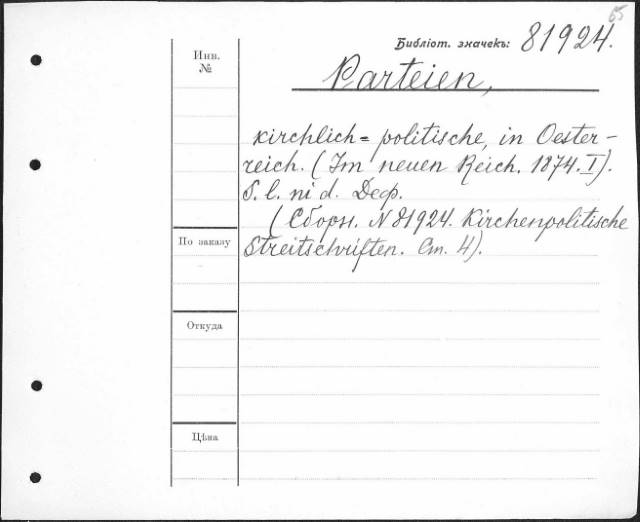 65
Библіот. значекъ: 81924.
Инв.
№
Parteien,
kirchlich= politische, in Oester-
reich. (Im neuen Reich. 1874. I).
S. l. ni d. Деф.
(Сборн. N 81924. Kirchenpolitische
Streitschriften. Ст. 4).
По заказу
Откуда
Цѣна